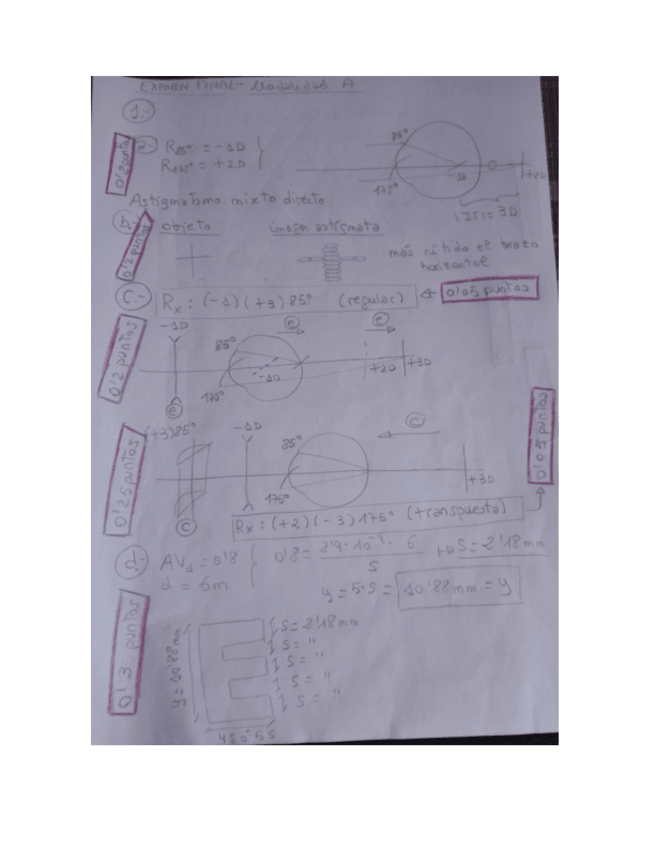 EXAMEN FINAL - Modalidad A
1.-
0'2 puntos
a.- R85° = -1D
R175° = +2D
85°
175°
-1D
+2D
|IS| = 3D
Astigmatismo mixto directo
0'2 puntos
b.- objeto imagen astígmata
más nítido el trazo horizontal
c.- Rx: (-1) (+3) 85° (regular) ← 0'05 puntos
0'2 puntos
-1D
85°
175°
-1D
e
e
e
+2D
+3D
0'25 puntos
(+3)85°
-1D
85°
175°
c
c
+3D
0'05 puntos
Rx: (+2) (-3) 175° (transpuesta)
d.- AVd = 0'8
d = 6m
0'8 = 2'9·10⁻⁴·6 / S → S = 2'18 mm
y = 5·S = 10'88 mm = y
0'3 puntos
y = 10'88 mm
S = 2'18 mm
S = "
S = "
S = "
S = "
4S o 5S